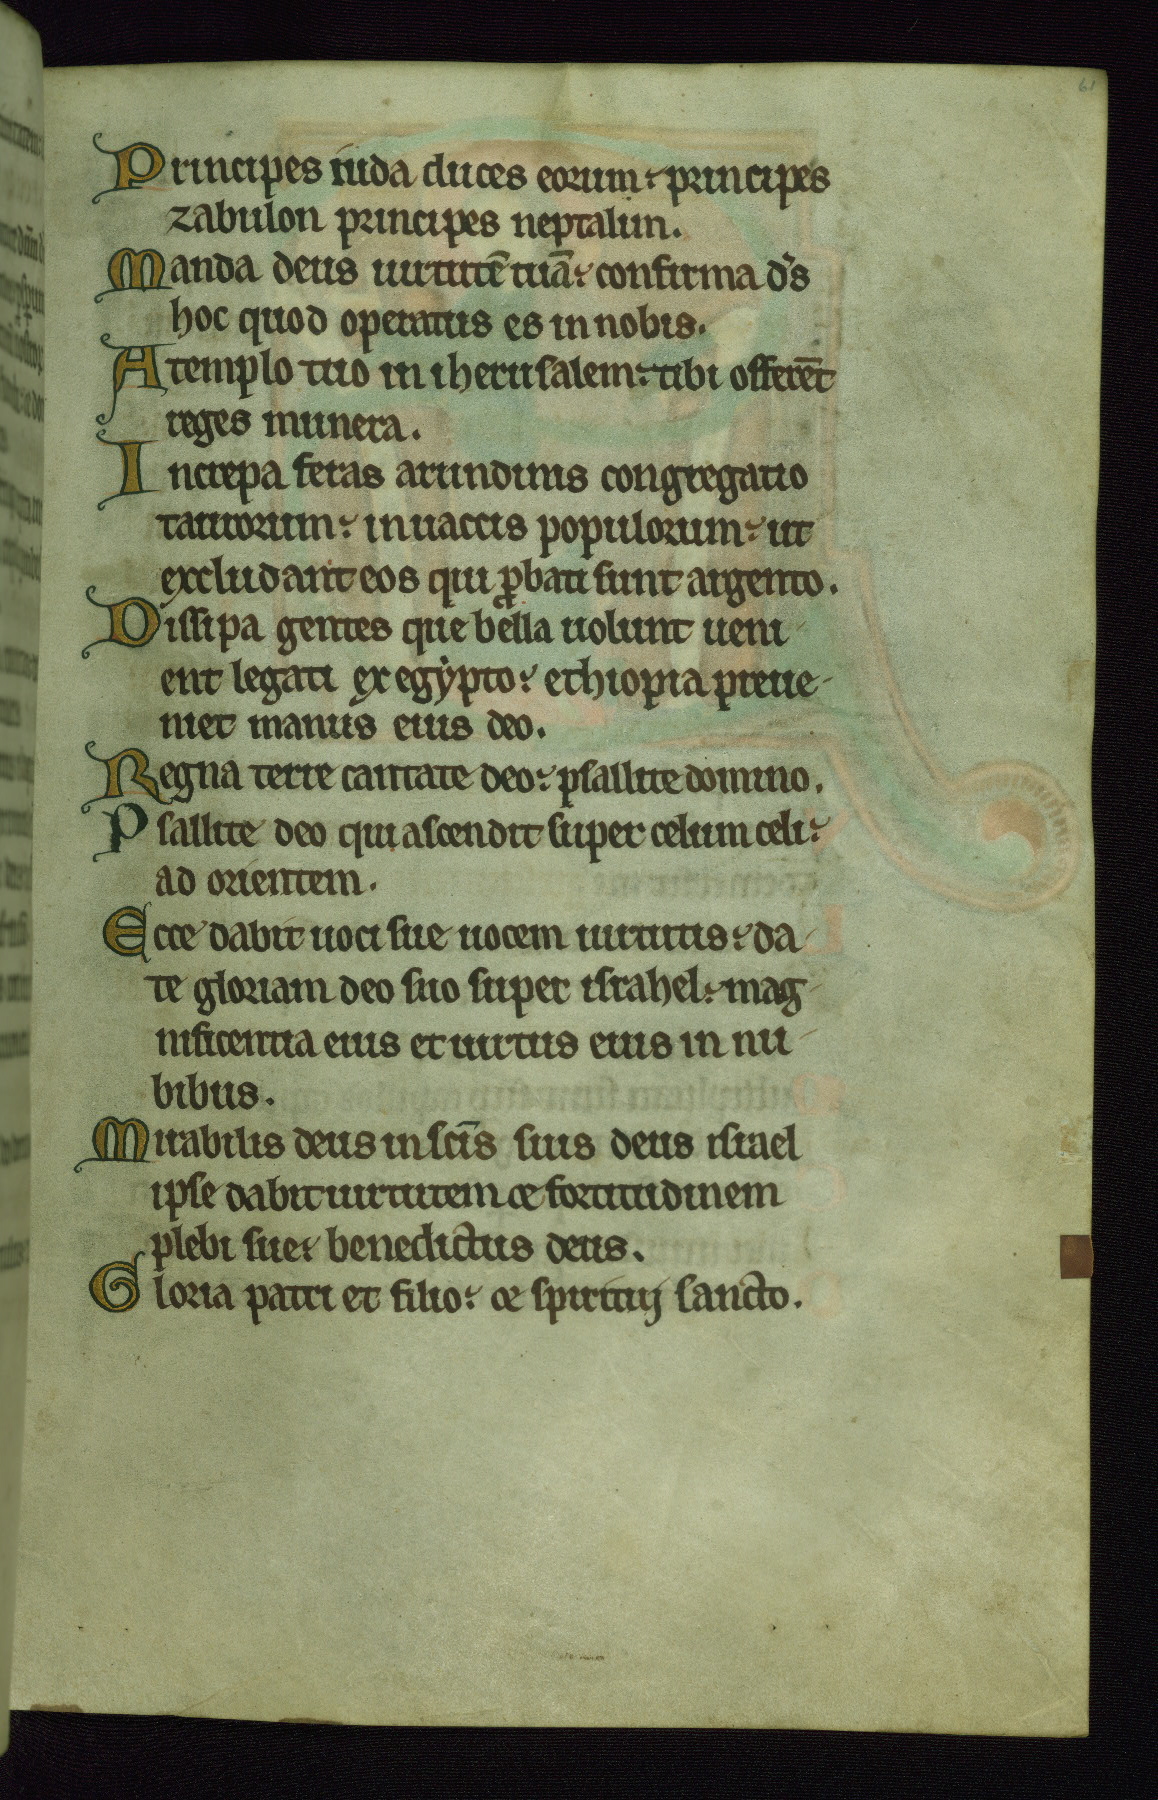 61
Principes iuda duces eorum: principes
zabulon principes neptalim.
Manda deus uirtutē tuā: confirma ds̄
hoc quod operatus es in nobis.
A templo tuo in iherusalem: tibi offerēt
reges munera.
Increpa feras arundinis congregatio
taurorum: in uaccis populorum: ut
excludant eos qui ꝓbati sunt argento.
Dissipa gentes que bella uolunt ueni-
ent legati ex egẏpto: ethiopia preue-
niet manus eius deo.
Regna terre cantate deo: psallite domino.
Psallite deo qui ascendit super celum celi:
ad orientem.
Ecce dabit uoci sue uocem uirtutis: da-
te gloriam deo suo super israhel: mag-
nificentia eius et uirtus eius in nu-
bibus.
Mirabilis deus in scīs suis deus israel
ipse dabit uirtutem et fortitudinem
plebi sue: benedictus deus.
Gloria patri et filio: et spirituj sancto.